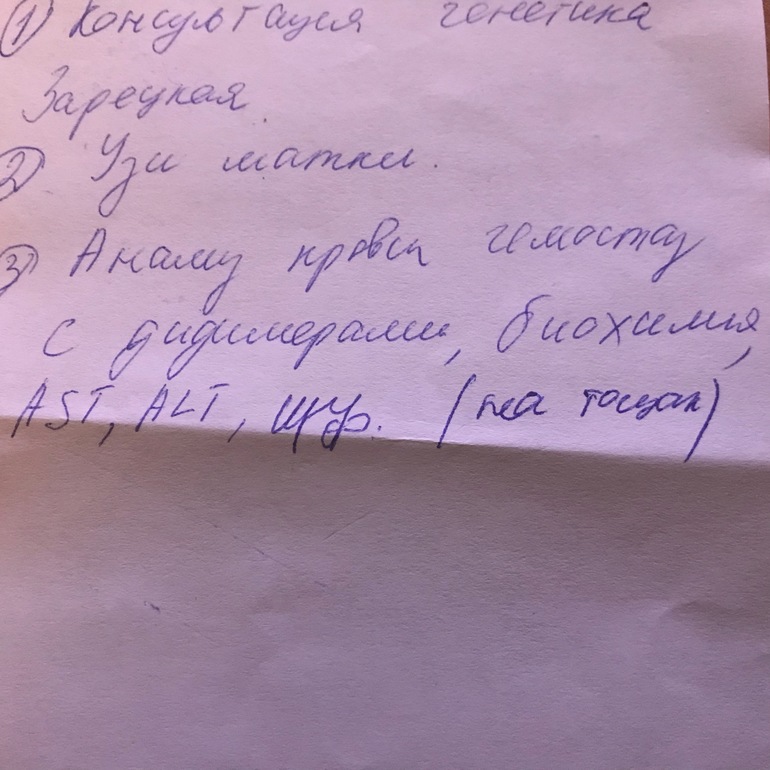 ① Консультация генетика
Зарецкая.
② Узи матки.
③ Анализ крови гемостаз
с дидимерами, биохимия,
AST, ALT, (на тощак)